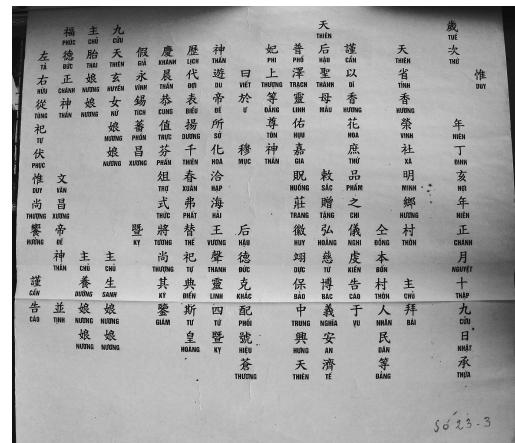 惟 DUY
歲 TUẾ 次 THỨ 年 NIÊN 丁 ĐINH 亥 HỢI 年 NIÊN 正 CHÁNH 月 NGUYỆT 十 THẬP 九 CỬU 日 NHẬT 承 THỪA
天 THIÊN 省 TỈNH 香 HƯƠNG 榮 VINH 社 XÃ 明 MINH 鄉 HƯƠNG 村 THÔN 主 CHỦ 拜 BÁI
仝 ĐỒNG 本 BỔN 村 THÔN 人 NHÂN 民 DÂN 等 ĐẲNG
謹 CẨN 以 DĨ 香 HƯƠNG 花 HOA 庶 THỨ 品 PHẨM 之 CHI 儀 NGHI 虔 KIÊN 告 CÁO 于 VU
天 THIÊN 后 HẬU 聖 THÁNH 母 MẪU 敕 SẮC 贈 TẶNG 弘 HOẰNG 慈 TỪ 博 BÁC 義 NGHĨA 安 AN 濟 TẾ
普 PHỔ 澤 TRẠCH 靈 LINH 佑 HỰU 嘉 GIA 貺 HUỐNG 莊 TRANG 徽 HUY 翊 DỰC 保 BẢO 中 TRUNG 興 HƯNG 天 THIÊN
妃 PHI 上 THƯỢNG 等 ĐẲNG 尊 TÔN 神 THẦN
曰 VIẾT 於 Ư 穆 MỤC 后 HẬU 德 ĐỨC 克 KHẮC 配 PHỐI 號 HIỆU 蒼 THƯƠNG
神 THẦN 遊 DU 帝 ĐẾ 所 SỞ 化 HOA 洽 HẠP 海 HẢI 王 VƯƠNG 聲 THANH 靈 LINH 四 TỨ 暨 KỴ
歷 LỊCH 代 ĐỢI 表 BIỂU 揚 DƯƠNG 千 THIÊN 春 XUÂN 弗 PHẤT 替 THẾ 祀 TỰ 典 ĐIỂN 斯 TƯ 皇 HOÀNG
慶 KHÁNH 晨 THẦN 恭 CUNG 值 TRỰC 芬 PHẦN 俎 TRỢ 式 THỨC 將 TƯƠNG 尚 THƯỢNG 其 KỲ 鑒 GIÁM
假 GIẢ 永 VĨNH 錫 TÍCH 蕃 PHỒN 昌 XƯƠNG 暨 KỴ
九 CỬU 天 THIÊN 玄 HUYỀN 女 NỮ 娘 NƯƠNG 娘 NƯƠNG 主 CHỦ 生 SANH 娘 NƯƠNG 娘 NƯƠNG
主 CHỦ 胎 THAI 娘 NƯƠNG 娘 NƯƠNG 主 CHỦ 養 DƯỠNG 娘 NƯƠNG 娘 NƯƠNG
福 PHÚC 德 ĐỨC 正 CHÁNH 神 THẦN 文 VĂN 昌 XƯƠNG 帝 ĐẾ 神 THẦN 並 TỊNH
左 TẢ 右 HỮU 從 TÙNG 祀 TỰ 伏 PHỤC 惟 DUY 尚 THƯỢNG 饗 HƯỞNG 謹 CẨN 告 CÁO
Số 23-3